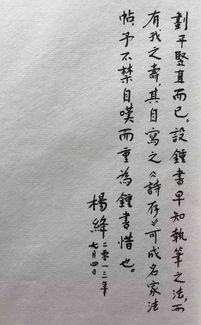 劃平豎直而已。設鍾書早知執筆之法，而
有我之壽，其自寫之《詩存》可成名家法
帖，予不禁自嘆而重為鍾書惜也。
楊絳
二零一三年
七月四日